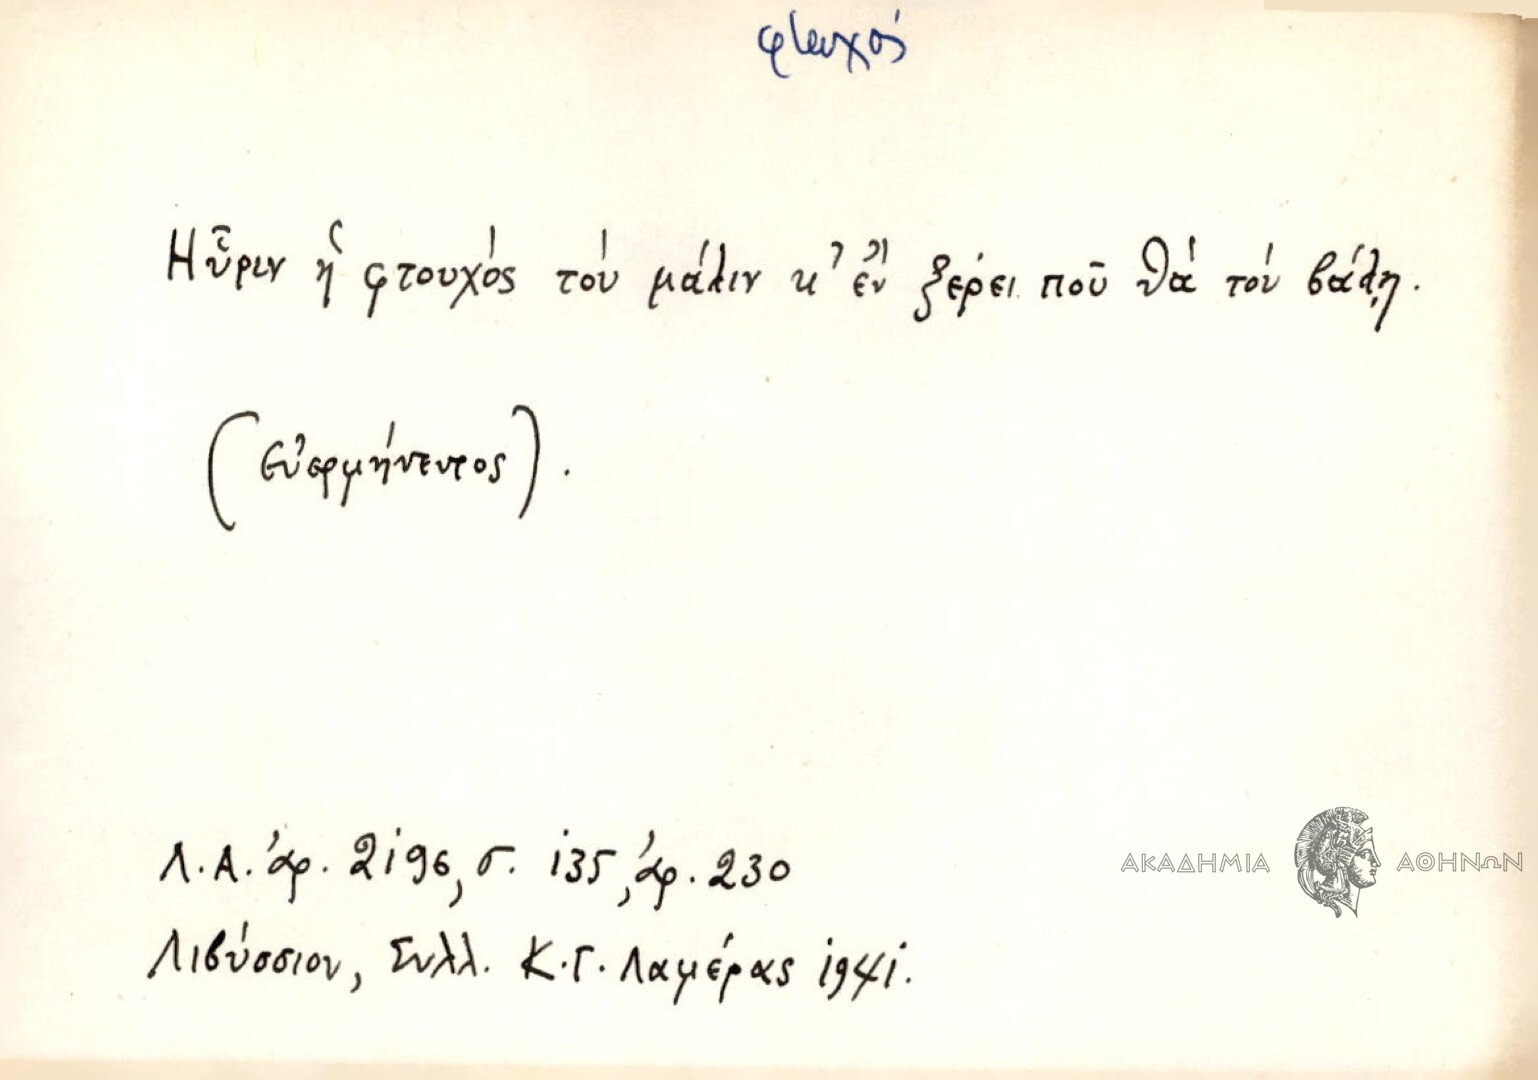 φτωχός
Ηὗριν ἡ φτουχός τού μάλιν κ' ἒν ξέρει ποῦ θά τού βάλῃ.
(Εὐερμήνευτος).
Λ.Α. ἀρ. 2196, σ. 135, ἀρ. 230
Λιβύσσιον, Συλλ. Κ.Γ. Λαμέρας 1941.
ΑΚΑΔΗΜΙΑ ΑΘΗΝΩΝ